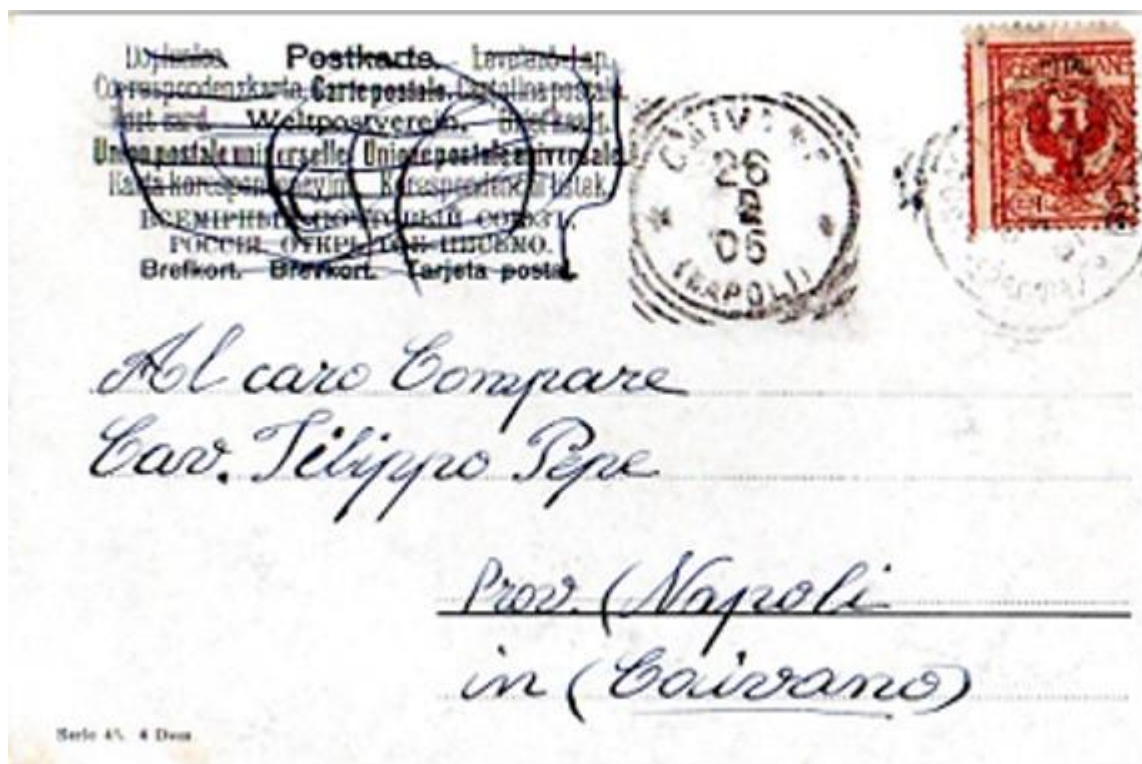 Dopisnica. Postkarte. Levelező-Lap.
Correspondenzkarte. Carte postale. Cartolina postale.
Post card. Weltpostverein. Briefkaart.
Union postale universelle. Unione postale universale.
Karta korespondencyjna. Korespondenční lístek.
ВСЕМІРНЫЙ ПОЧТОВЫЙ СОЮЗЪ.
РОССІЯ. ОТКРЫТОЕ ПИСЬМО.
Brefkort. Brevkort. Tarjeta postal.
CAIVANO
26
05
(NAPOLI)
Al caro Compare
Cav. Filippo Pepe
Prov. (Napoli
in (Caivano)
Serie 45. 4 Dess